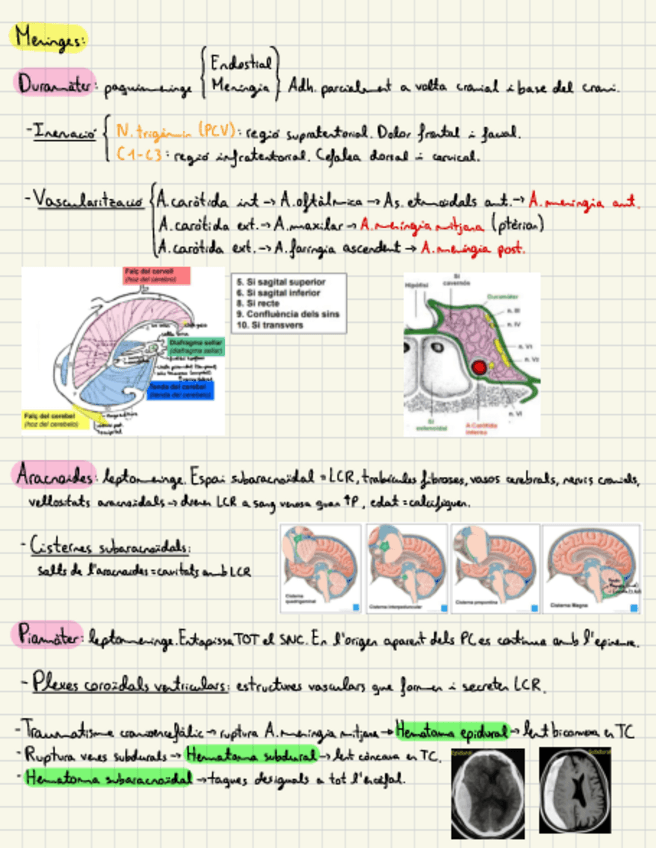 Meninges:
Duramàter: paquimeninge { Endostial
Meníngia } Adh. parcialment a volta cranial i base del crani.
- Inervació { N. trigèmin (PCV): regió supratentorial. Dolor frontal i facial.
C1-C3: regió infratentorial. Cefalea dorsal i cervical.
- Vascularització { A. caròtida int → A. oftàlmica → As. etmoidals ant. → A. meníngia ant.
A. caròtida ext. → A. maxilar → A. meníngia mitjana (ptèrion)
A. caròtida ext. → A. faríngia ascendent → A. meníngia post.
Falç del cervell
(hoz del cerebro)
Diafragma sellar
(diafragma sellar)
Tenda del cerebel
(tienda del cerebelo)
Falç del cerebel
(hoz del cerebelo)
5. Si sagital superior
6. Si sagital inferior
8. Si recte
9. Confluència dels sins
10. Si transvers
Si
cavernós
Hipòfisi
Duramàter
n. III
n. IV
n. VI
n. V2
n. VI
Si
esfenoidal
A Caròtida
interna
Aracnoides: leptomeninge. Espai subaracnoïdal = LCR, trabècules fibroses, vasos cerebrals, nervis cranials,
vellositats aracnoïdals → drenen LCR a sang venosa quan ↑P, edat = calcifiquen.
- Cisternes subaracnoïdals:
Salts de l'aracnoides = cavitats amb LCR
Cisterna
quadrigeminal
Cisterna interpeduncular
Cisterna prepontina
Cisterna Magna
Piamàter: leptomeninge. Entapissa TOT el SNC. En l'origen aparent dels PC es continua amb l'epineure.
- Plexes coroïdals ventriculars: estructures vasculars que formen i secreten LCR.
- Traumatisme cranoencefàlic → ruptura A. meníngia mitjana → Hematoma epidural → lent biconvexa en TC
- Ruptura venes subdurals → Hematoma subdural → lent còncava en TC.
- Hematoma subaracnoïdal → taques desiguals a tot l'encèfal.
Epidural
Subdural